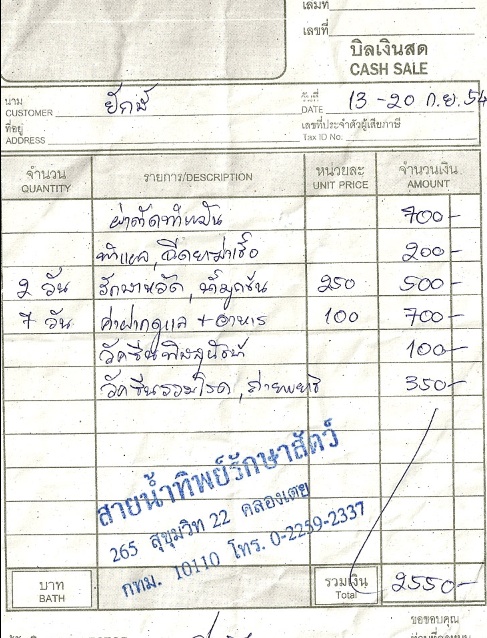 เล่มที่
เลขที่
บิลเงินสด
CASH SALE
นาม
CUSTOMER ยักษ์
วันที่
DATE 13-20 ก.ย. 54
ที่อยู่
ADDRESS
เลขที่ประจำตัวผู้เสียภาษี
Tax ID No.
จำนวน รายการ/DESCRIPTION หน่วยละ จำนวนเงิน
QUANTITY UNIT PRICE AMOUNT
ผ่าตัดทำหมัน 700-
ทำแผล, ฉีดยาฆ่าเชื้อ 200-
2 วัน รักษาหวัด, น้ำมูกข้น 250 500-
7 วัน ค่าฝากดูแล + อาหาร 100 700-
วัคซีนพิษสุนัขบ้า 100-
วัคซีนรวมโรค, ถ่ายพยาธิ 350-
สายน้ำทิพย์รักษาสัตว์
265 สุขุมวิท 22 คลองเตย
กทม. 10110 โทร. 0-2259-2337
บาท รวมเงิน 2550-
BATH Total
ขอขอบคุณ